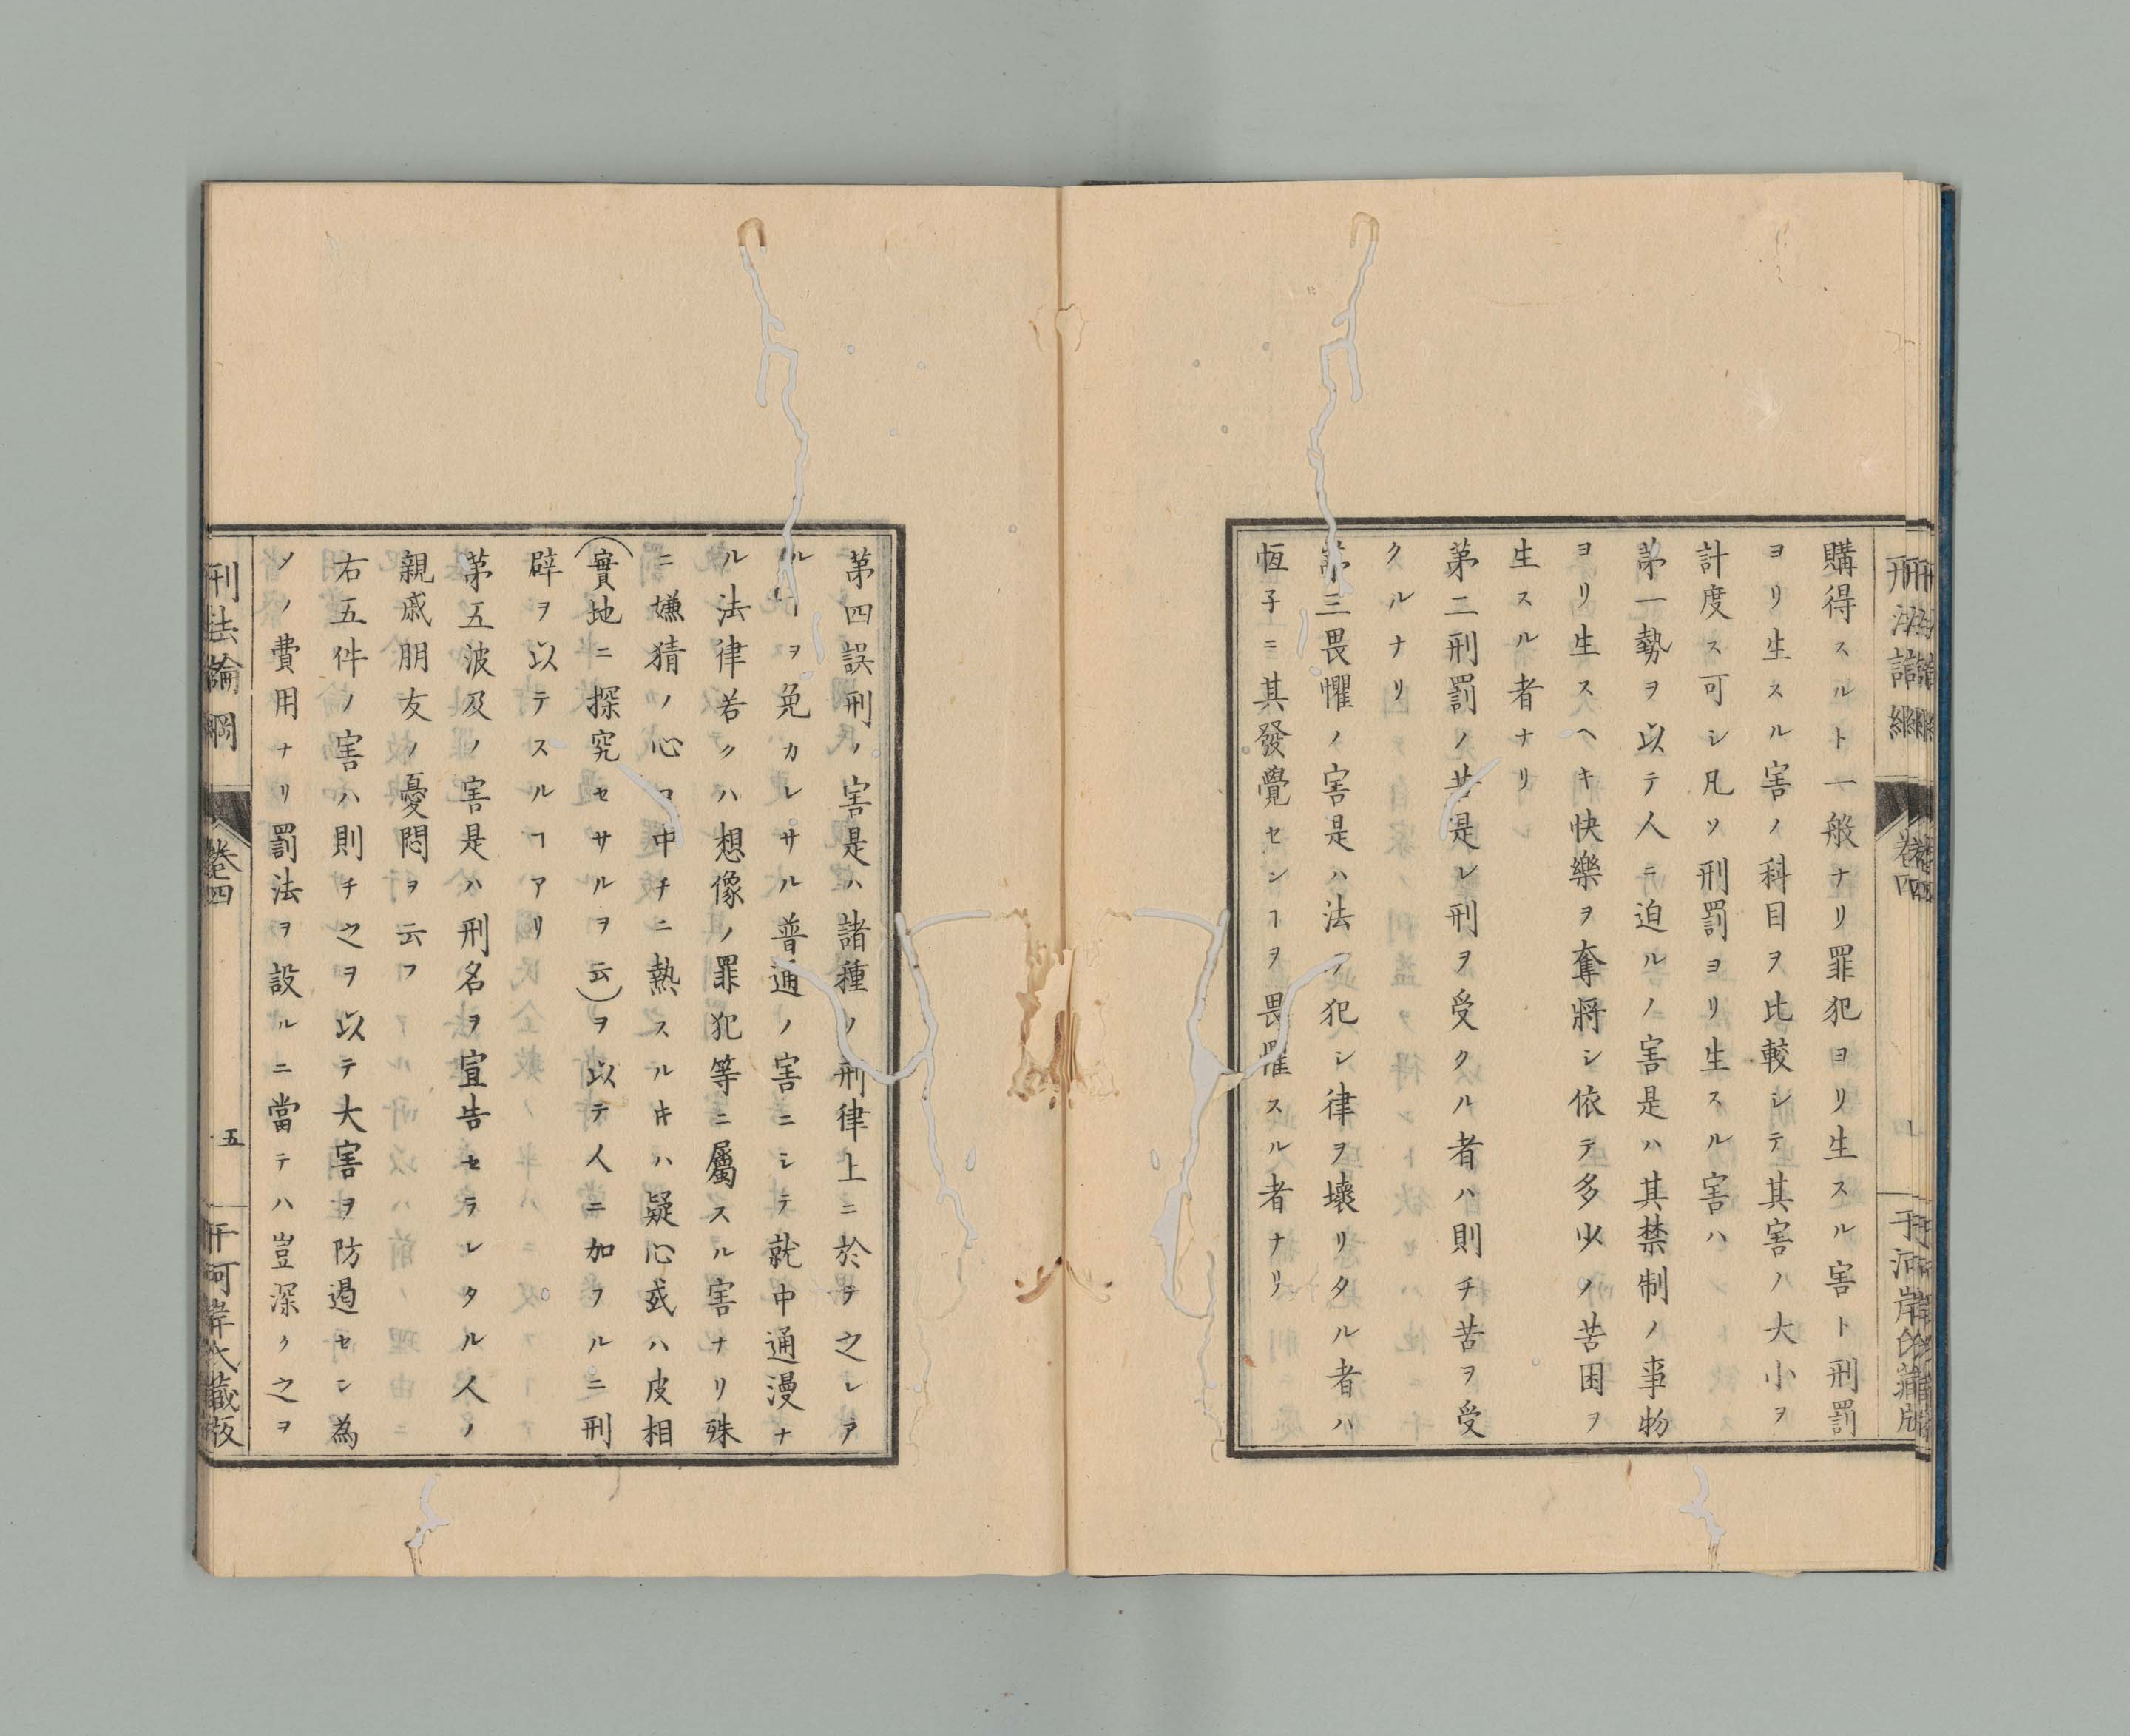 購得スルト一般ナリ罪犯ヨリ生スル害ト刑罰
ヨリ生スル害ノ科目ヲ比較シテ其害ノ大小ヲ
計度ス可シ凡ソ刑罰ヨリ生スル害ハ
第一勢ヲ以テ人ニ迫ルノ害是ハ其禁制ノ事物
ヨリ生スヘキ快樂ヲ奪將シ依テ多少ノ苦困ヲ
生スル者ナリ
第二刑罰ノ苦是レ刑ヲ受クル者ハ則チ苦ヲ受
クルナリ
第三畏懼ノ害是ハ法ヲ犯シ律ヲ壊リタル者ハ
恆子ニ其發覺センヿヲ畏懼スル者ナリ
刑法論綱
卷四
第四誤刑ノ害是ハ諸種ノ刑律上ニ於テ之レア
ルヿヲ免カレサル普通ノ害ニシテ就中通漫ナ
ル法律若クハ想像ノ罪犯等ニ屬スル害ナリ殊
ニ嫌猜ノ心ヿ中チニ熱スルキハ疑心或ハ皮相
(實地ニ探究セサルヲ云)ヲ以テ人ニ加フルニ刑
辟ヲ以テスルヿアリ
第五波及ノ害是ハ刑名ヲ宣告セラレタル人ノ
親戚朋友ノ憂悶ヲ云フ
右五件ノ害ハ則チ之ヲ以テ大害ヲ防遏セン為
メノ費用ナリ罰法ヲ設ルニ當テハ豈深ク之ヲ
刑法論綱
卷四
五
干河岸氏藏版